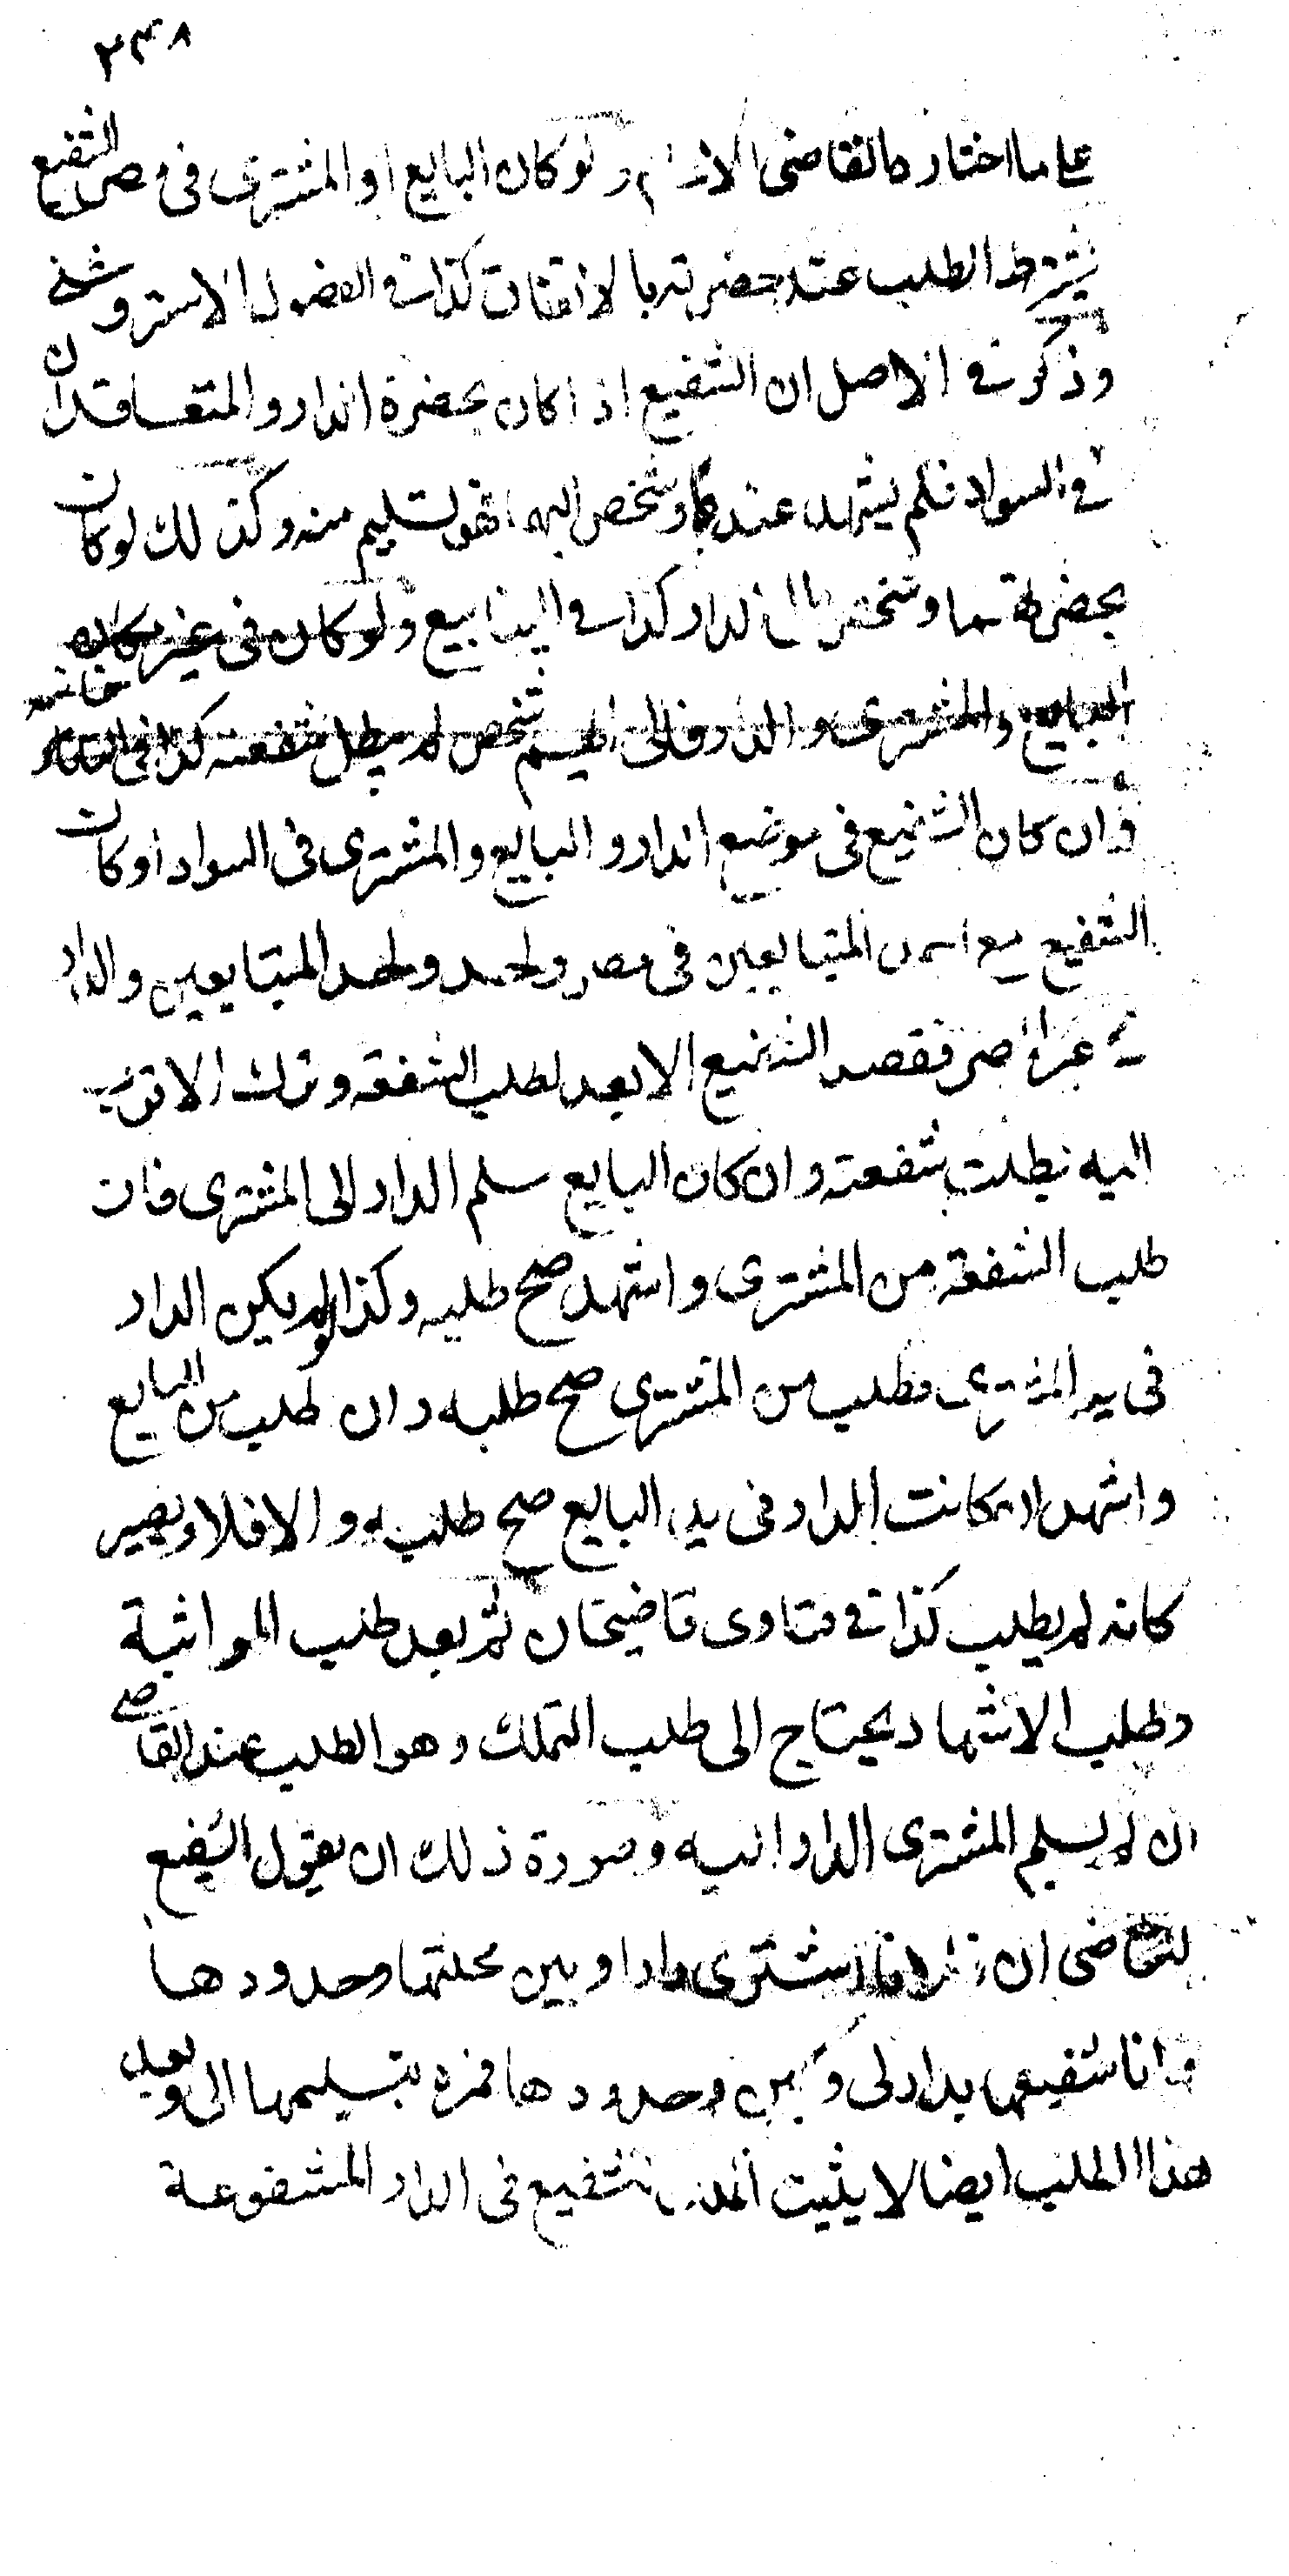 ٢٣٨
على ما اختاره القاضى الامام ولو كان البايع او المشترى فى مصر الشفيع
يشترط الطلب عند حضرته بالاتفاق كذا فى الفصول الاستروشنى
وذكر فى الاصل ان الشفيع اذا كان بحضرة الدار والمتعاقدان
فى السواد فلم يشهد عندها وشخص اليهما فهو تسليم منه وكذلك لو كان
بحضرتهما وشخص الى الدار كذا فى الينابيع ولو كان فى غير مكان
البايع والمشترى والدار فالى ايهم شخص لم يبطل شفعته كذا فى التتار
خانيه
وان كان الشفيع فى موضع الدار والبايع والمشترى فى السواد او كان
الشفيع مع احد المتبايعين فى مصر واحد واحد المتبايعين والدار
فى غير المصر فقصد الشفيع الابعد لطلب الشفعة وترك الاقرب
اليه بطلت شفعته وان كان البايع سلم الدار الى المشترى فان
طلب الشفعة من المشترى واشهد صح طلبه وكذا لو لم يكن الدار
فى يد المشترى فطلب من المشترى صح طلبه وان طلب من البايع
واشهد ان كانت الدار فى يد البايع صح طلبه والا فلا ويصير
كانه لم يطلب كذا فى فتاوى قاضيخان ثم بعد طلب المواثبة
وطلب الاشهاد يحتاج الى طلب التملك وهو الطلب عند القاضى
ان لم يسلم المشترى الدار اليه وصورة ذلك ان يقول الشفيع
للقاضى ان فلانا اشترى دارا وبين محلتها وحدودها
وانا شفيعها بدار لى وبين حدودها فمره بتسليمها الى وبعد
هذا الطلب ايضا لا يثبت الملك للشفيع فى الدار المشفوعة